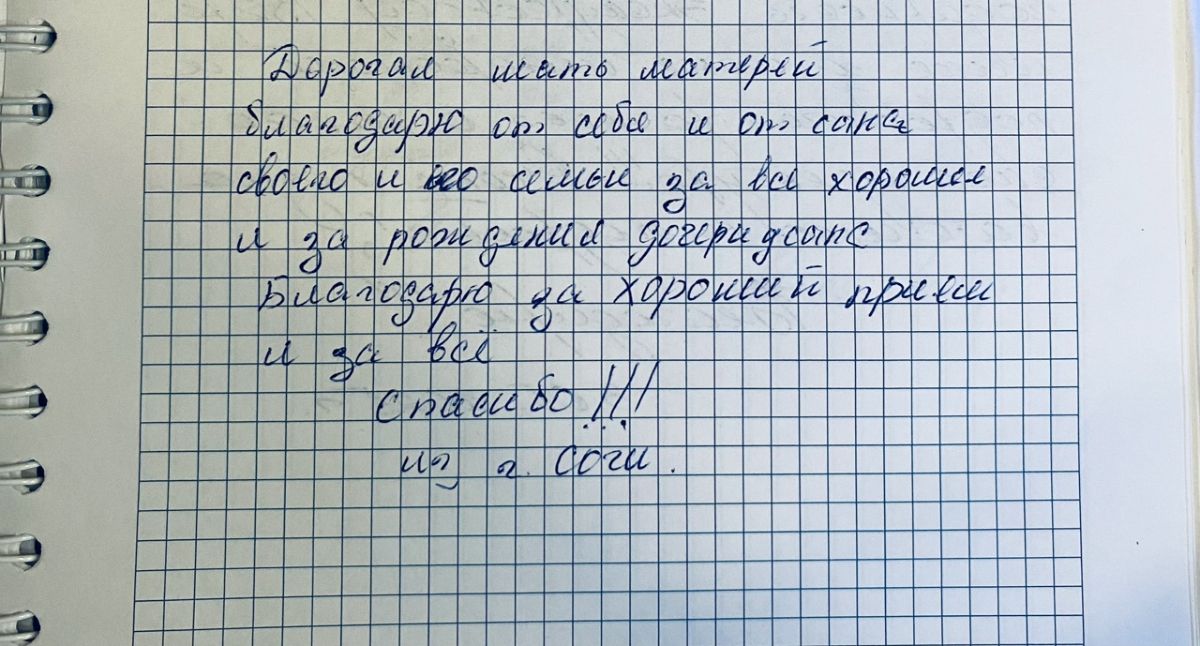 Дорогая мать матерей
благодарю от себя и от сана
своего и его семьи за все хорошее
и за рождения дочери
Благодарю за хороший прием
и за всё
Спасибо!!!
из г. Сочи.